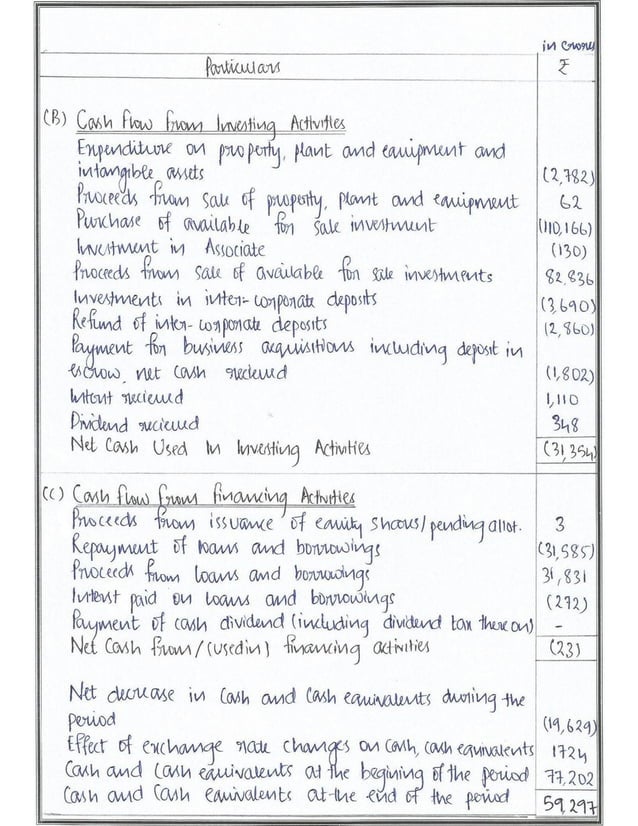 in crores
Particulars ₹
(B) Cash Flow From Investing Activities
Expenditure on property, plant and equipment and
intangible assets (2,782)
Proceeds from sale of property, plant and equipment 62
Purchase of available for sale investment (110,166)
Investment in Associate (130)
Proceeds from sale of available for sale investments 82,836
Investments in inter-corporate deposits (3,690)
Refund of inter-corporate deposits (2,860)
Payment for business acquisitions including deposit in
escrow, net cash recieved (1,802)
Interst recieved 1,110
Dividend recieved 348
Net Cash Used In Investing Activities (31,354)
(C) Cash Flow from Financing Activities
Proceeds from issuance of equity shares/pending allot. 3
Repayment of loans and borrowings (31,585)
Proceeds from loans and borrowings 31,831
Interst paid on loans and borrowings (272)
Payment of cash dividend (including dividend tax there on) -
Net Cash from/(used in) financing activities (23)
Net decrease in cash and cash equivalents during the
period (19,629)
Effect of exchange rate changes on cash, cash equivalents 1724
Cash and cash equivalents at the begining of the period 77,202
Cash and cash equivalents at the end of the period 59,297